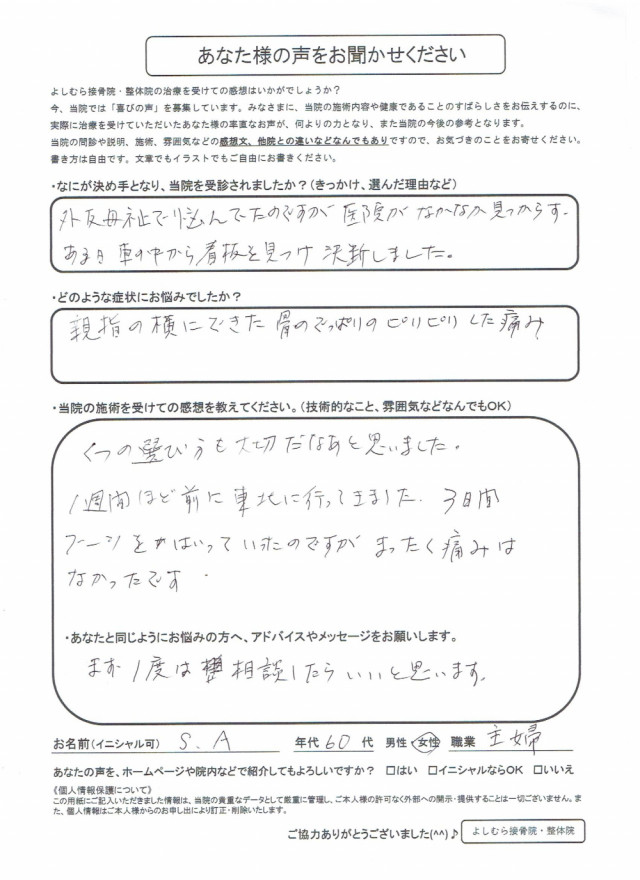 あなた様の声をお聞かせください
よしむら接骨院・整体院の治療を受けての感想はいかがでしょうか？
今、当院では「喜びの声」を募集しています。みなさまに、当院の施術内容や健康であることのすばらしさをお伝えするのに、
実際に治療を受けていただいたあなた様の率直なお声が、何よりの力となり、また当院の今後の参考となります。
当院の問診や説明、施術、雰囲気などの感想文、他院との違いなどなんでもありですので、お気づきのことをお寄せください。
書き方は自由です。文章でもイラストでもご自由にお書きください。
・なにが決め手となり、当院を受診されましたか？(きっかけ、選んだ理由など)
外反母祉で悩んでたのですが 医院がなかなか見つからず.
ある日 車の中から看板を見つけ 決断しました。
・どのような症状にお悩みでしたか？
親指の横にできた骨のでっぱりのピリピリした痛み
・当院の施術を受けての感想を教えてください。(技術的なこと、雰囲気などなんでもOK)
くつの選び方も大切だなあと思いました.
1週間ほど前に東北に行ってきました. 3日間
ブーツをはいていたのですが まったく痛みは
なかったです.
・あなたと同じようにお悩みの方へ、アドバイスやメッセージをお願いします。
まず1度は相談したらいいと思います.
お名前(イニシャル可) S.A 年代 60 代 男性・女性 職業 主婦
あなたの声を、ホームページや院内などで紹介してもよろしいですか？ □はい □イニシャルならOK □いいえ
《個人情報保護について》
この用紙にご記入いただきました情報は、当院の貴重なデータとして厳重に管理し、ご本人様の許可なく外部への開示・提供することは一切ございません。ま
た、個人情報はご本人様からのお申し出により訂正・削除いたします。
ご協力ありがとうございました(^^)♪ よしむら接骨院・整体院